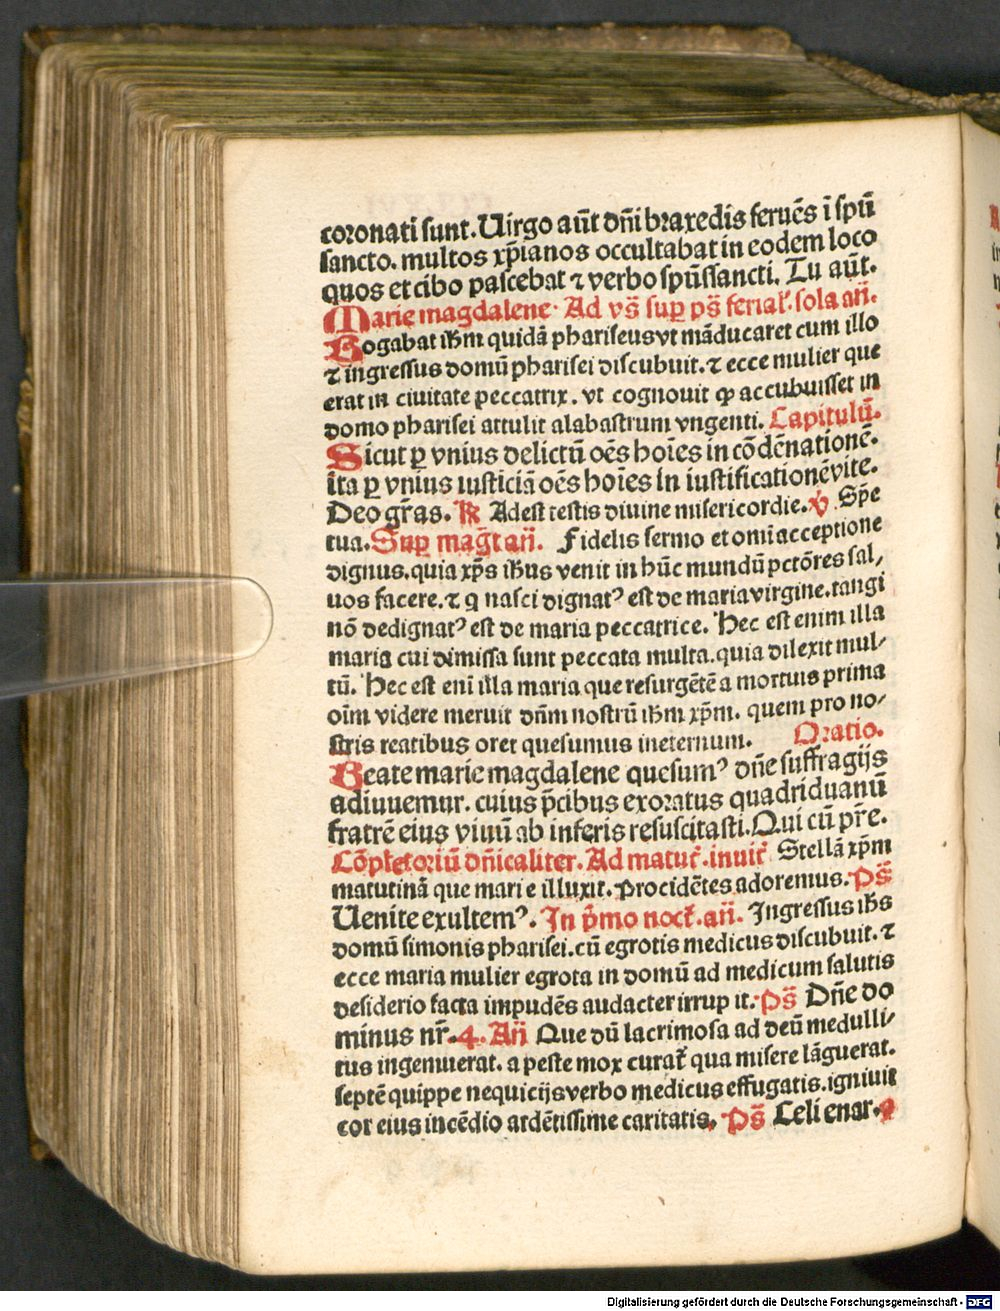 coronati sunt. Uirgo aūt dn̄i braxedis feruēs ī spū
sancto. multos xp̄ianos occultabat in eodem loco
quos et cibo pascebat ⁊ verbo spūssancti. Tu aūt.
Marie magdalene. Ad vs̄ suꝑ ps̄ ferial᷑. sola an̄.
Rogabat ih̄m quidā phariseus vt māducaret cum illo
⁊ ingressus domū pharisei discubuit. ⁊ ecce mulier que
erat in ciuitate peccatrix. vt cognouit ꝙ accubuisset in
domo pharisei attulit alabastrum vngenti. Capitulū.
Sicut ꝑ vnius delictū oēs hoīes in cōdēnationē.
ita ꝑ vnius iusticiā oēs hoīes in iustificationē vite.
Deo gr̄as. ℟ Adest testis diuine misericordie. ℣ Sp̄e
tua. Suꝑ maḡt an̄. Fidelis sermo et omī acceptione
dignus. quia xp̄s ih̄us venit in hūc mundū pctōres sal⸗
uos facere. ⁊ q nasci dignatꝰ est de maria virgine. tangi
nō dedignatꝰ est de maria peccatrice. Hec est enim illa
maria cui dimissa sunt peccata multa. quia dilexit mul⸗
tū. Hec est enī illa maria que resurgētē a mortuis prima
oīm videre meruit dn̄m nostrū ih̄m xp̄m. quem pro no⸗
stris reatibus oret quesumus ineternum. Oratio.
Beate marie magdalene quesumꝰ dn̄e suffragijs
adiuuemur. cuius p̄cibus exoratus quadriduanū
fratrē eius viuū ab inferis resuscitasti. Qui cū pr̄e.
Cōpletoriū dn̄icaliter. Ad matut᷑. inuit᷑ Stellā xp̄m
matutinā que marie illuxit. procidētes adoremus. Ps̄
Uenite exultemꝰ. In p̄mo noct᷑. an̄. Ingressus ih̄s
domū simonis pharisei. cū egrotis medicus discubuit. ⁊
ecce maria mulier egrota in domū ad medicum salutis
desiderio facta impudēs audacter irrup it. Ps̄ Dn̄e do
minus nr̄. 4. An̄ Que dū lacrimosa ad deū medulli⸗
tus ingemuerat. a peste mox curat᷑ qua misere lāguerat.
septē quippe nequicijs verbo medicus effugatis. igniuit
cor eius incēdio ardētissime caritatis. Ps̄ Celi enar.
Digitalisierung gefördert durch die Deutsche Forschungsgemeinschaft - DFG